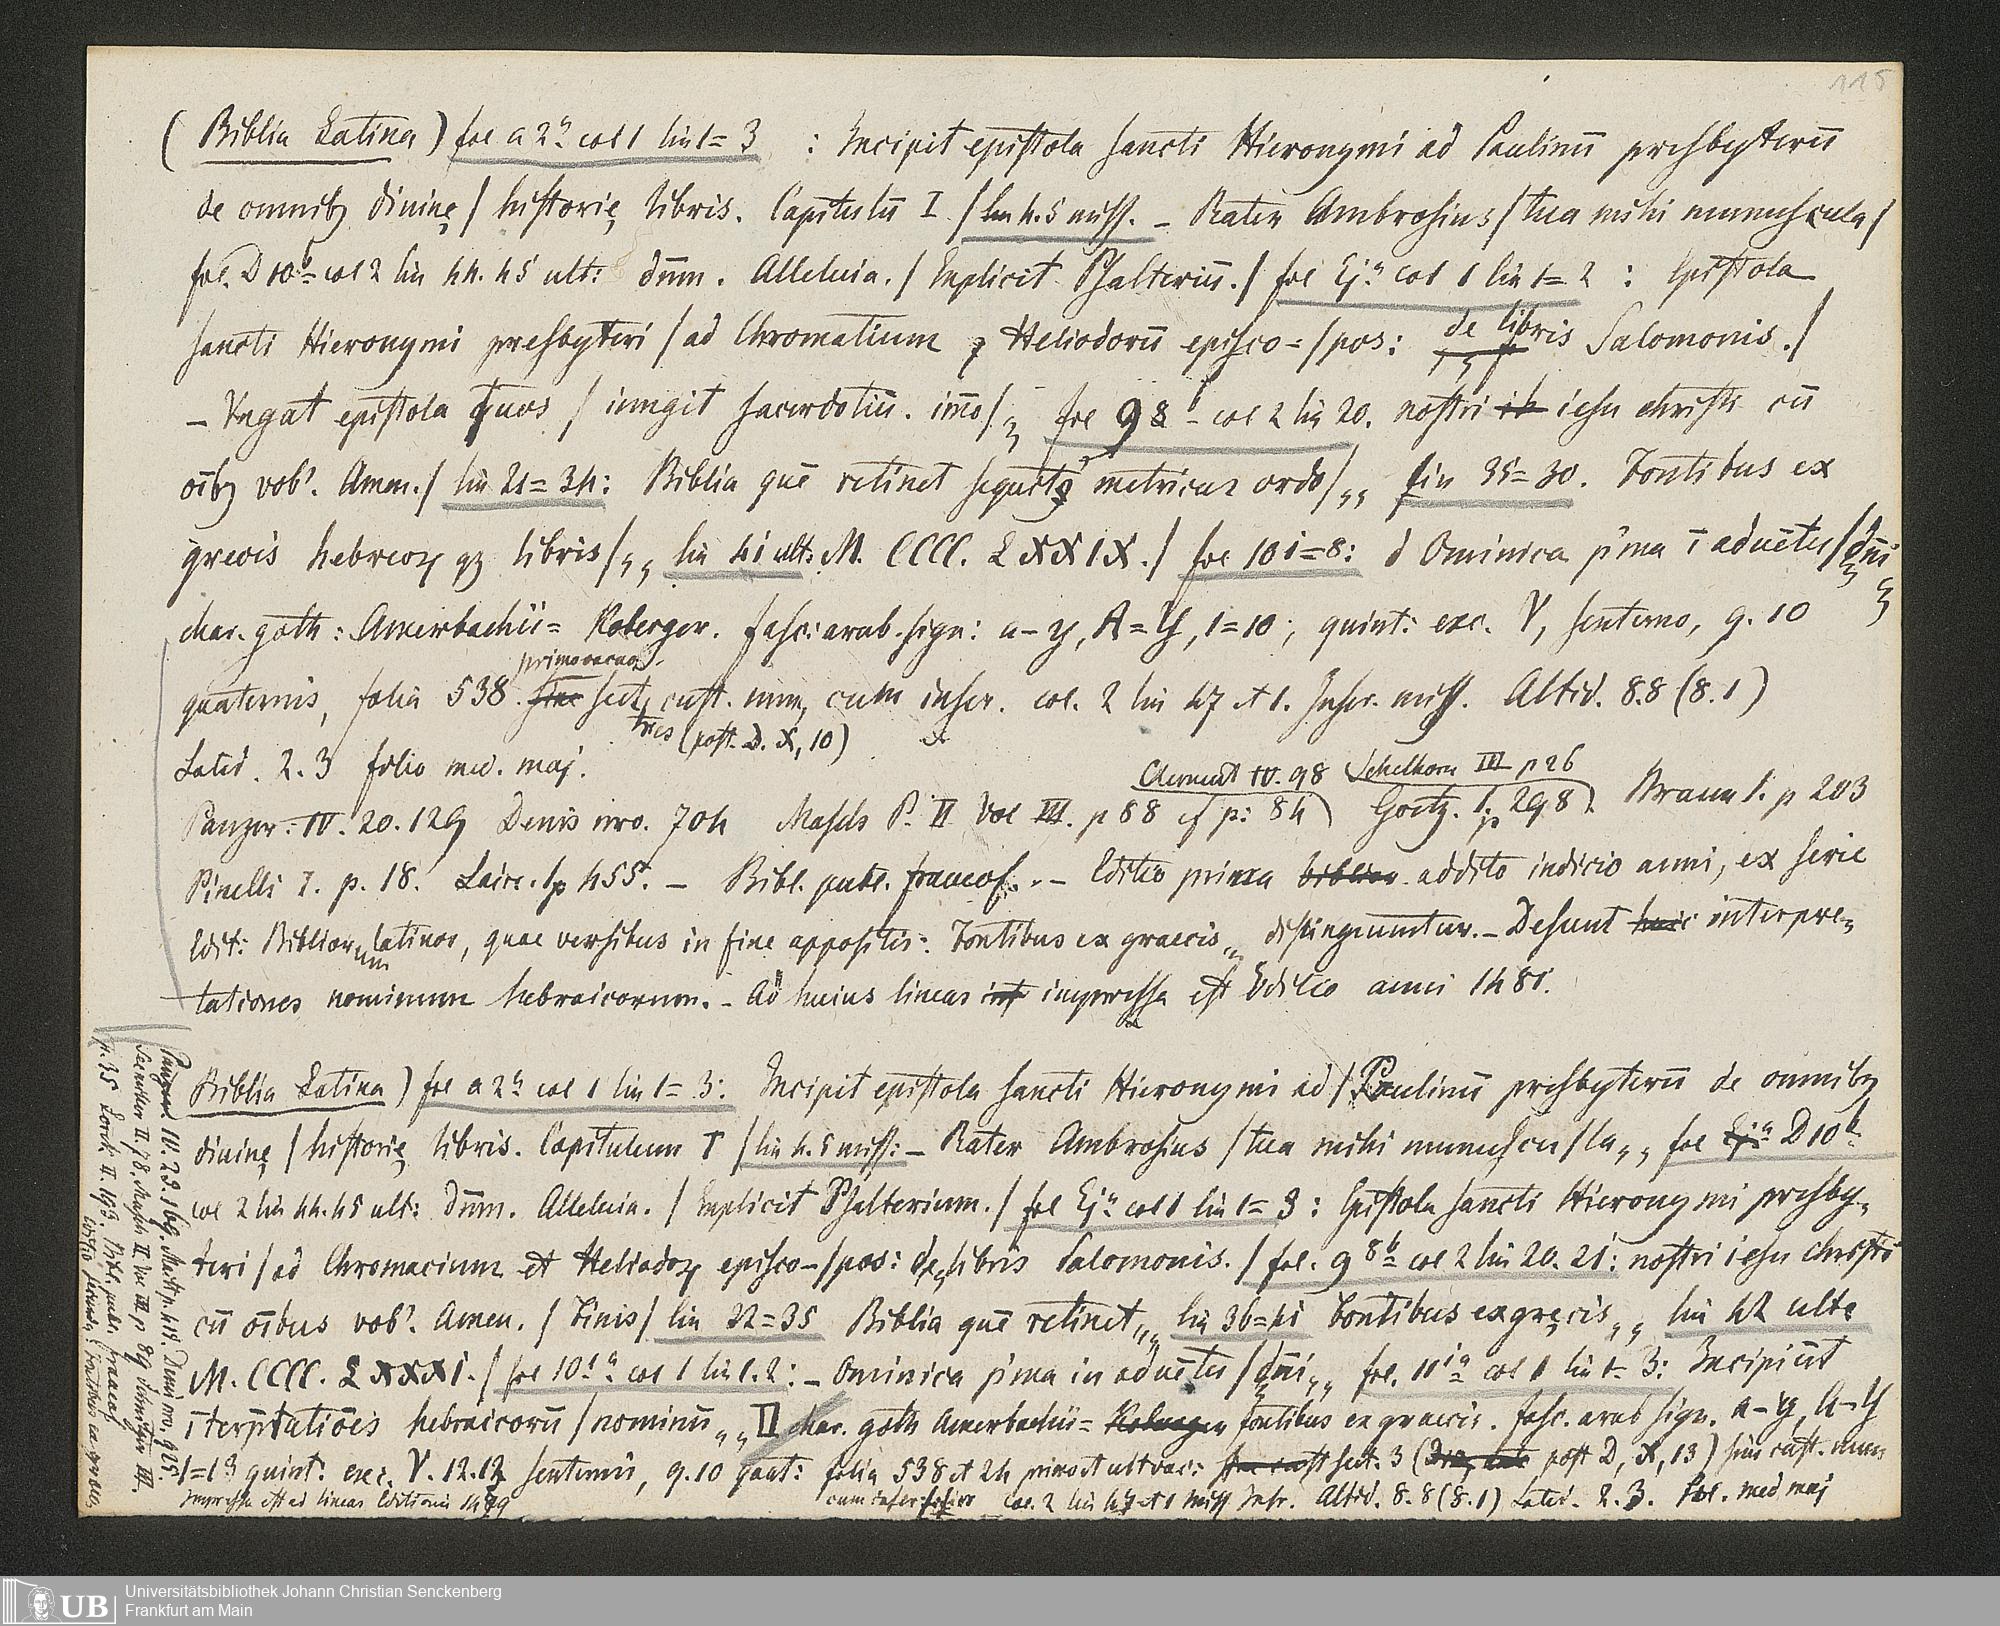 115
(Biblia Latina) fol a 2ª col 1 lin 1=3 : Incipit epistola sancti Hieronymi ad Paulinū presbyterū
de omnibꝫ divinę / historię libris. Capitulū I / lin 4.5 miss. – Rater Ambrosius / tua mihi munuscula /
fol. D 10ᵇ col 2 lin 44. 45 ult: dn̄m. Alleluia. / Explicit Psalteriū. / fol Ejª col 1 lin 1=2 : Epistola
sancti Hieronymi presbyteri / ad Chromatium ⁊ Heliodorū episco=/pos: de libris Salomonis. /
– Vngat epistola quos / iungit sacerdotiū. im̄o /,, fol 98ᵇ – col 2 lin 20. nostri iesu christi cū
oībꝫ vobꝰ. Amen. / lin 21=34: Biblia quē retinet sequit᷑ metricus ordo /,, lin 35=30. Fontibus ex
grecis hebreoꝝ qꝫ libris /,, lin 41 ult: M. CCCC. LXXIX. / fol 10 i=8: d Ominica p'ma ī aduētu / dn̄i
char. goth: Amerbachii= Koberger. fasc: arab. sign: a–y, A=Y, 1=10; quint: exc. V, senterno, 9. 10
primo vacuo.
quaternis, folia 538. sect, cust. num, cum inscr. col. 2 lin 47 et 1. Inscr. miss. Altid. 8.8 (8.1)
tres (post. D. X, 10)
Latid. 2.3 folio med. maj.
Clement IV. 98 Schelhorn III p 26
Panzer. IV. 20. 129 Denis nro. 704 Masch P. II Vol III. p 88 cf p: 84) Goetz. 1. p 298) Braun 1. p 203
Pinelli I. p. 18. Laire. 1 p 455. – Bibl. publ. francof. – Editio prima addito indicio anni, ex serie
Edit: Bibliorum latinor, quae versibus in fine appositis: Fontibus ex graecis,, distinguuntur. – Desunt interpre-
tationes nominum hebraicorum. – Ad huius lineas impressa est Editio anni 1481.
Biblia Latina) fol a 2ª col 1 lin 1=3: Incipit epistola sancti Hieronymi ad / Paulinū presbyterū de omnibꝫ
divinę / historię libris. Capitulum I / lin 4.5 miss: – Rater Ambrosius / tua mihi munuscu / la,, fol D 10ᵇ
col 2 lin 44. 45 ult: Dn̄m. Alleluia. / Explicit Psalterium. / fol Ejª col 1 lin 1=3 : Epistola sancti Hieronymi presby-
teri / ad Chromacium et Heliodoꝝ episco-/pos: de libris Salomonis. / fol. 9 8ᵇ col 2 lin 20. 21: nostri iesu christi
cū oībus vobꝰ. Amen. / Finis / lin 22=35 Biblia quē retinet,, lin 36=41 Fontibus ex gręcis,, lin 42 ult.
M. CCCC. LXXXI. / fol 10 1ª col 1 lin 1. 2: – Ominica p'ma in aduētu / dn̄i,, fol. 11 iª col 1 lin 1=3: Incipiūt
īterp̄tatiōes hebraicorū / nominū,, II char. goth Amerbachii= fontibus ex graecis. fasc. arab sign. a–y, A–Y
1=13 quint: exc. V. 12. 12 senternis, 9. 10 quat: folia 538 et 24 primo et ult vac: sect: 3 (post D, X, 13) sine cust. num
Impressa est ad lineas Editionis 1479 cum inscr. col. 2 lin 47 et 1 miss Inscr. Altid. 8. 8 (8.1) Latid. 2. 3. fol. med maj
Panzer IV. 23. 169. p. 415. Denis nro. 925.
Seemiller II. 78. Masch II Vol III. p 89 III.
p. 35 Lorck II. 163. Bibl. publ. francof.
Editio secunda: Fontibus ex graecis
UB
Universitätsbibliothek Johann Christian Senckenberg
Frankfurt am Main